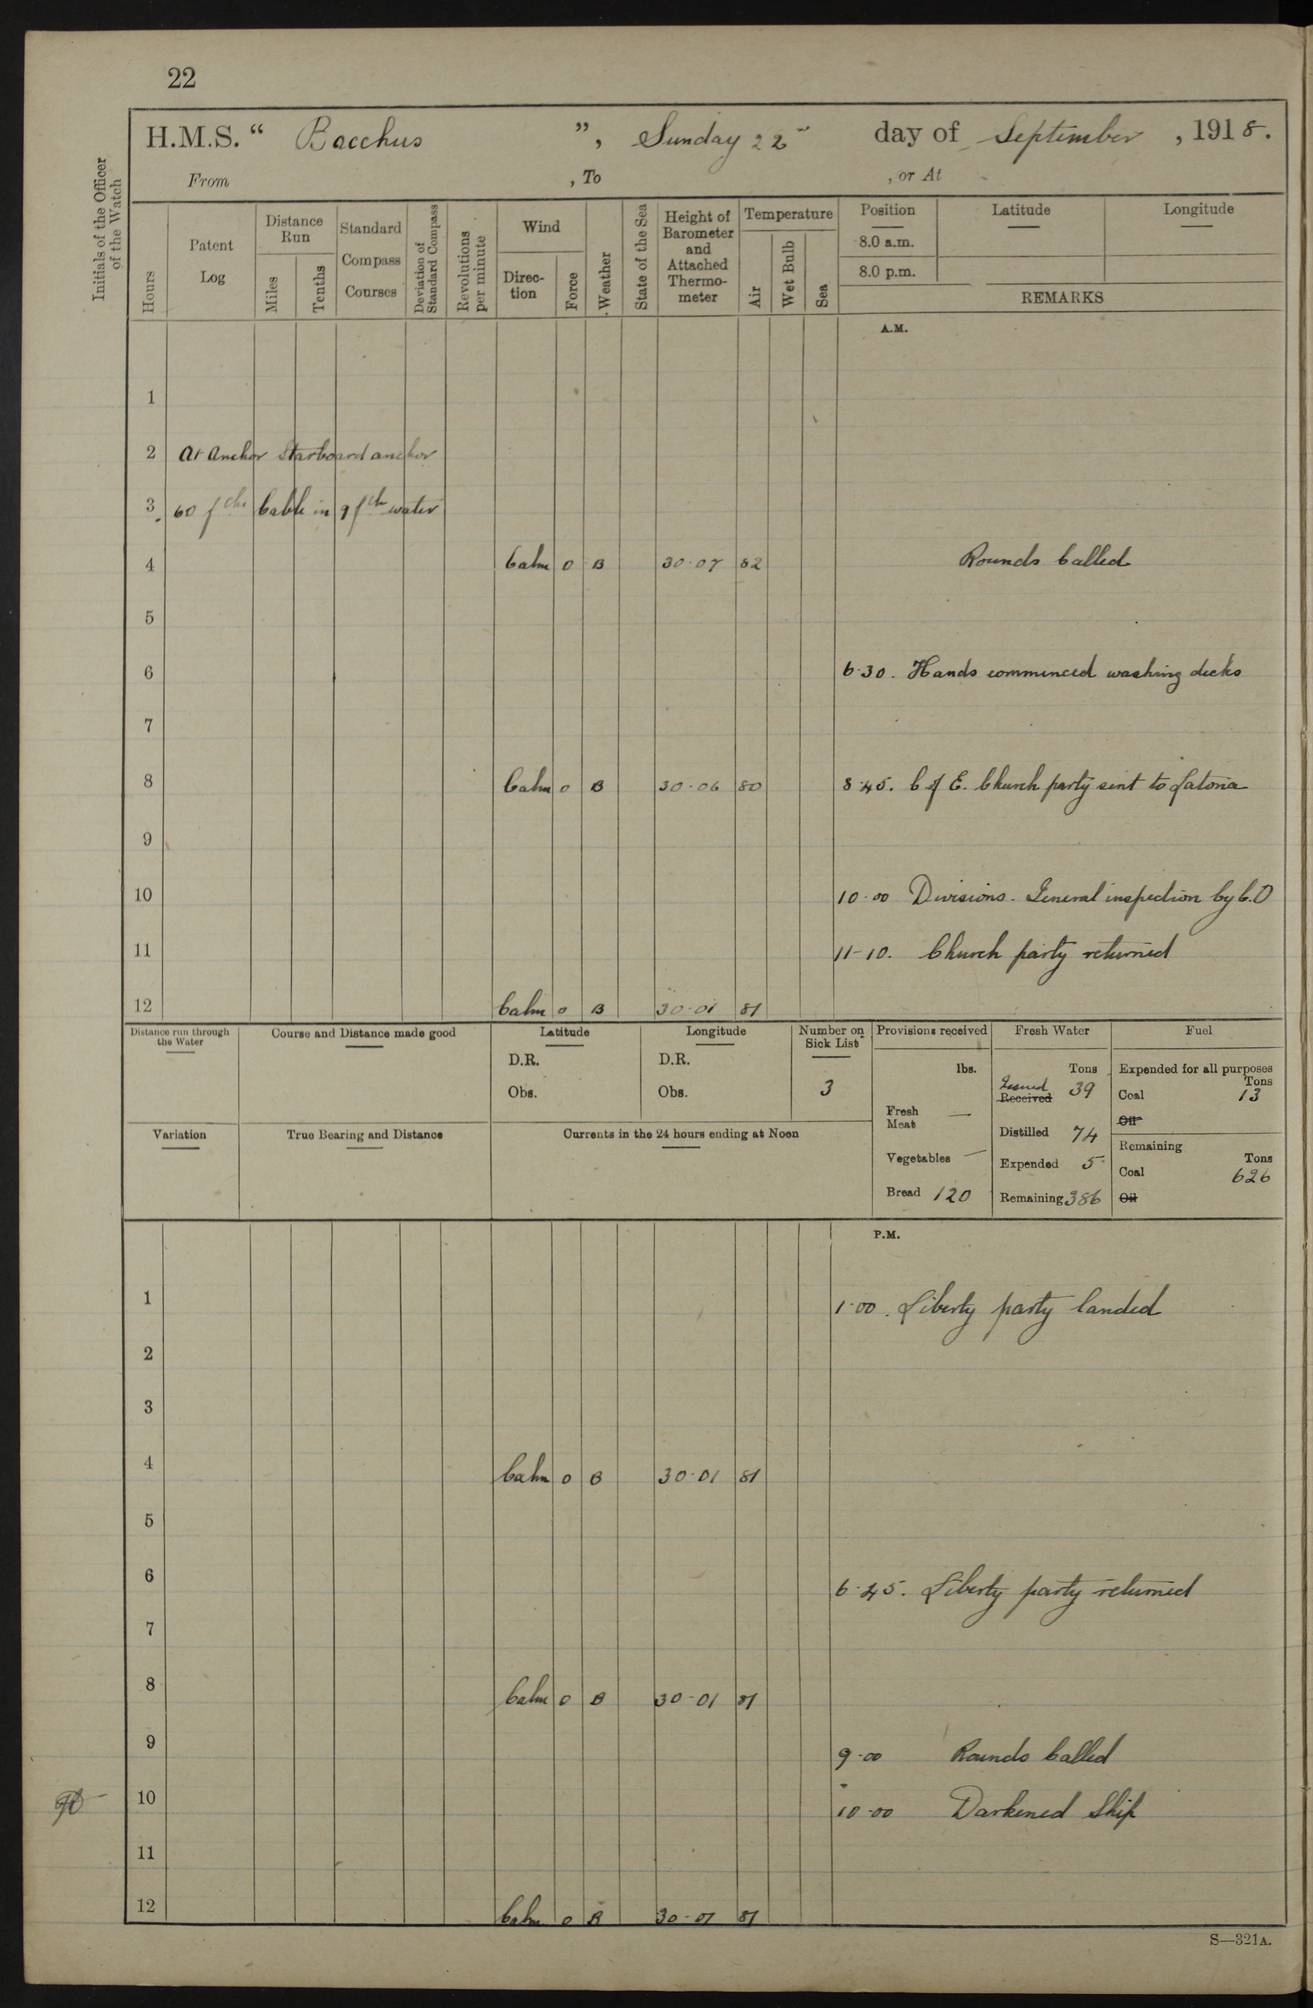 22
H.M.S. “ Bacchus ”, Sunday 22nd day of September, 1918.
From , To , or At
Initials of the Officer of the Watch
Hours
Patent Log
Distance Run
Miles
Tenths
Standard Compass Courses
Deviation of Standard Compass
Revolutions per minute
Wind
Direction
Force
Weather
State of the Sea
Height of Barometer and Attached Thermometer
Temperature
Air
Wet Bulb
Sea
Position Latitude Longitude
8.0 a.m.
8.0 p.m.
REMARKS
A.M.
1
2 At Anchor Starboard anchor
3 60 fths Cable in 9 fth water
4 Calm 0 B 30·07 82 Rounds Called
5
6 6·30. Hands commenced washing decks
7
8 Calm 0 B 30·06 80 8·45. C of E. Church party sent to Latona
9
10 10·00 Divisions. General inspection by C.O
11 11-10. Church party returned
12 Calm 0 B 30·01 81
Distance run through the Water
Course and Distance made good
Latitude
D.R.
Obs.
Longitude
D.R.
Obs.
Number on Sick List
3
Variation
True Bearing and Distance
Currents in the 24 hours ending at Noon
Provisions received
lbs.
Fresh Meat —
Vegetables —
Bread 120
Fresh Water
Tons
Issued
Received 39
Distilled 74
Expended 5
Remaining 386
Fuel
Expended for all purposes
Tons
Coal 13
Oil
Remaining
Tons
Coal 626
Oil
P.M.
1 1·00. Liberty party landed
2
3
4 Calm 0 B 30·01 81
5
6 6·45. Liberty party returned
7
8 Calm 0 B 30·01 81
9 9·00 Rounds Called
10 10·00 Darkened Ship
11
12 Calm 0 B 30·01 81
S—321A.